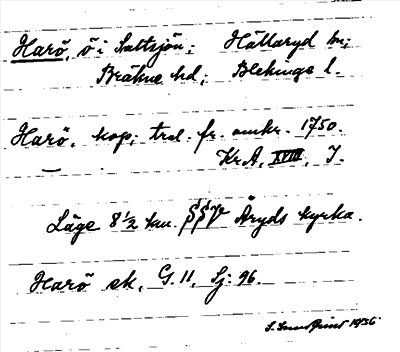 Harö, ö i Saltsjön; Hällaryd sn;
Bräkne hd; Blekinge l.
Harö, kop; trol. fr. omkr. 1750.
Kr.A. XVIII, J.
Läge 8 1/2 km. SSV Åryds kyrka.
Harö ek. G. 11. Sj. 96.
1936